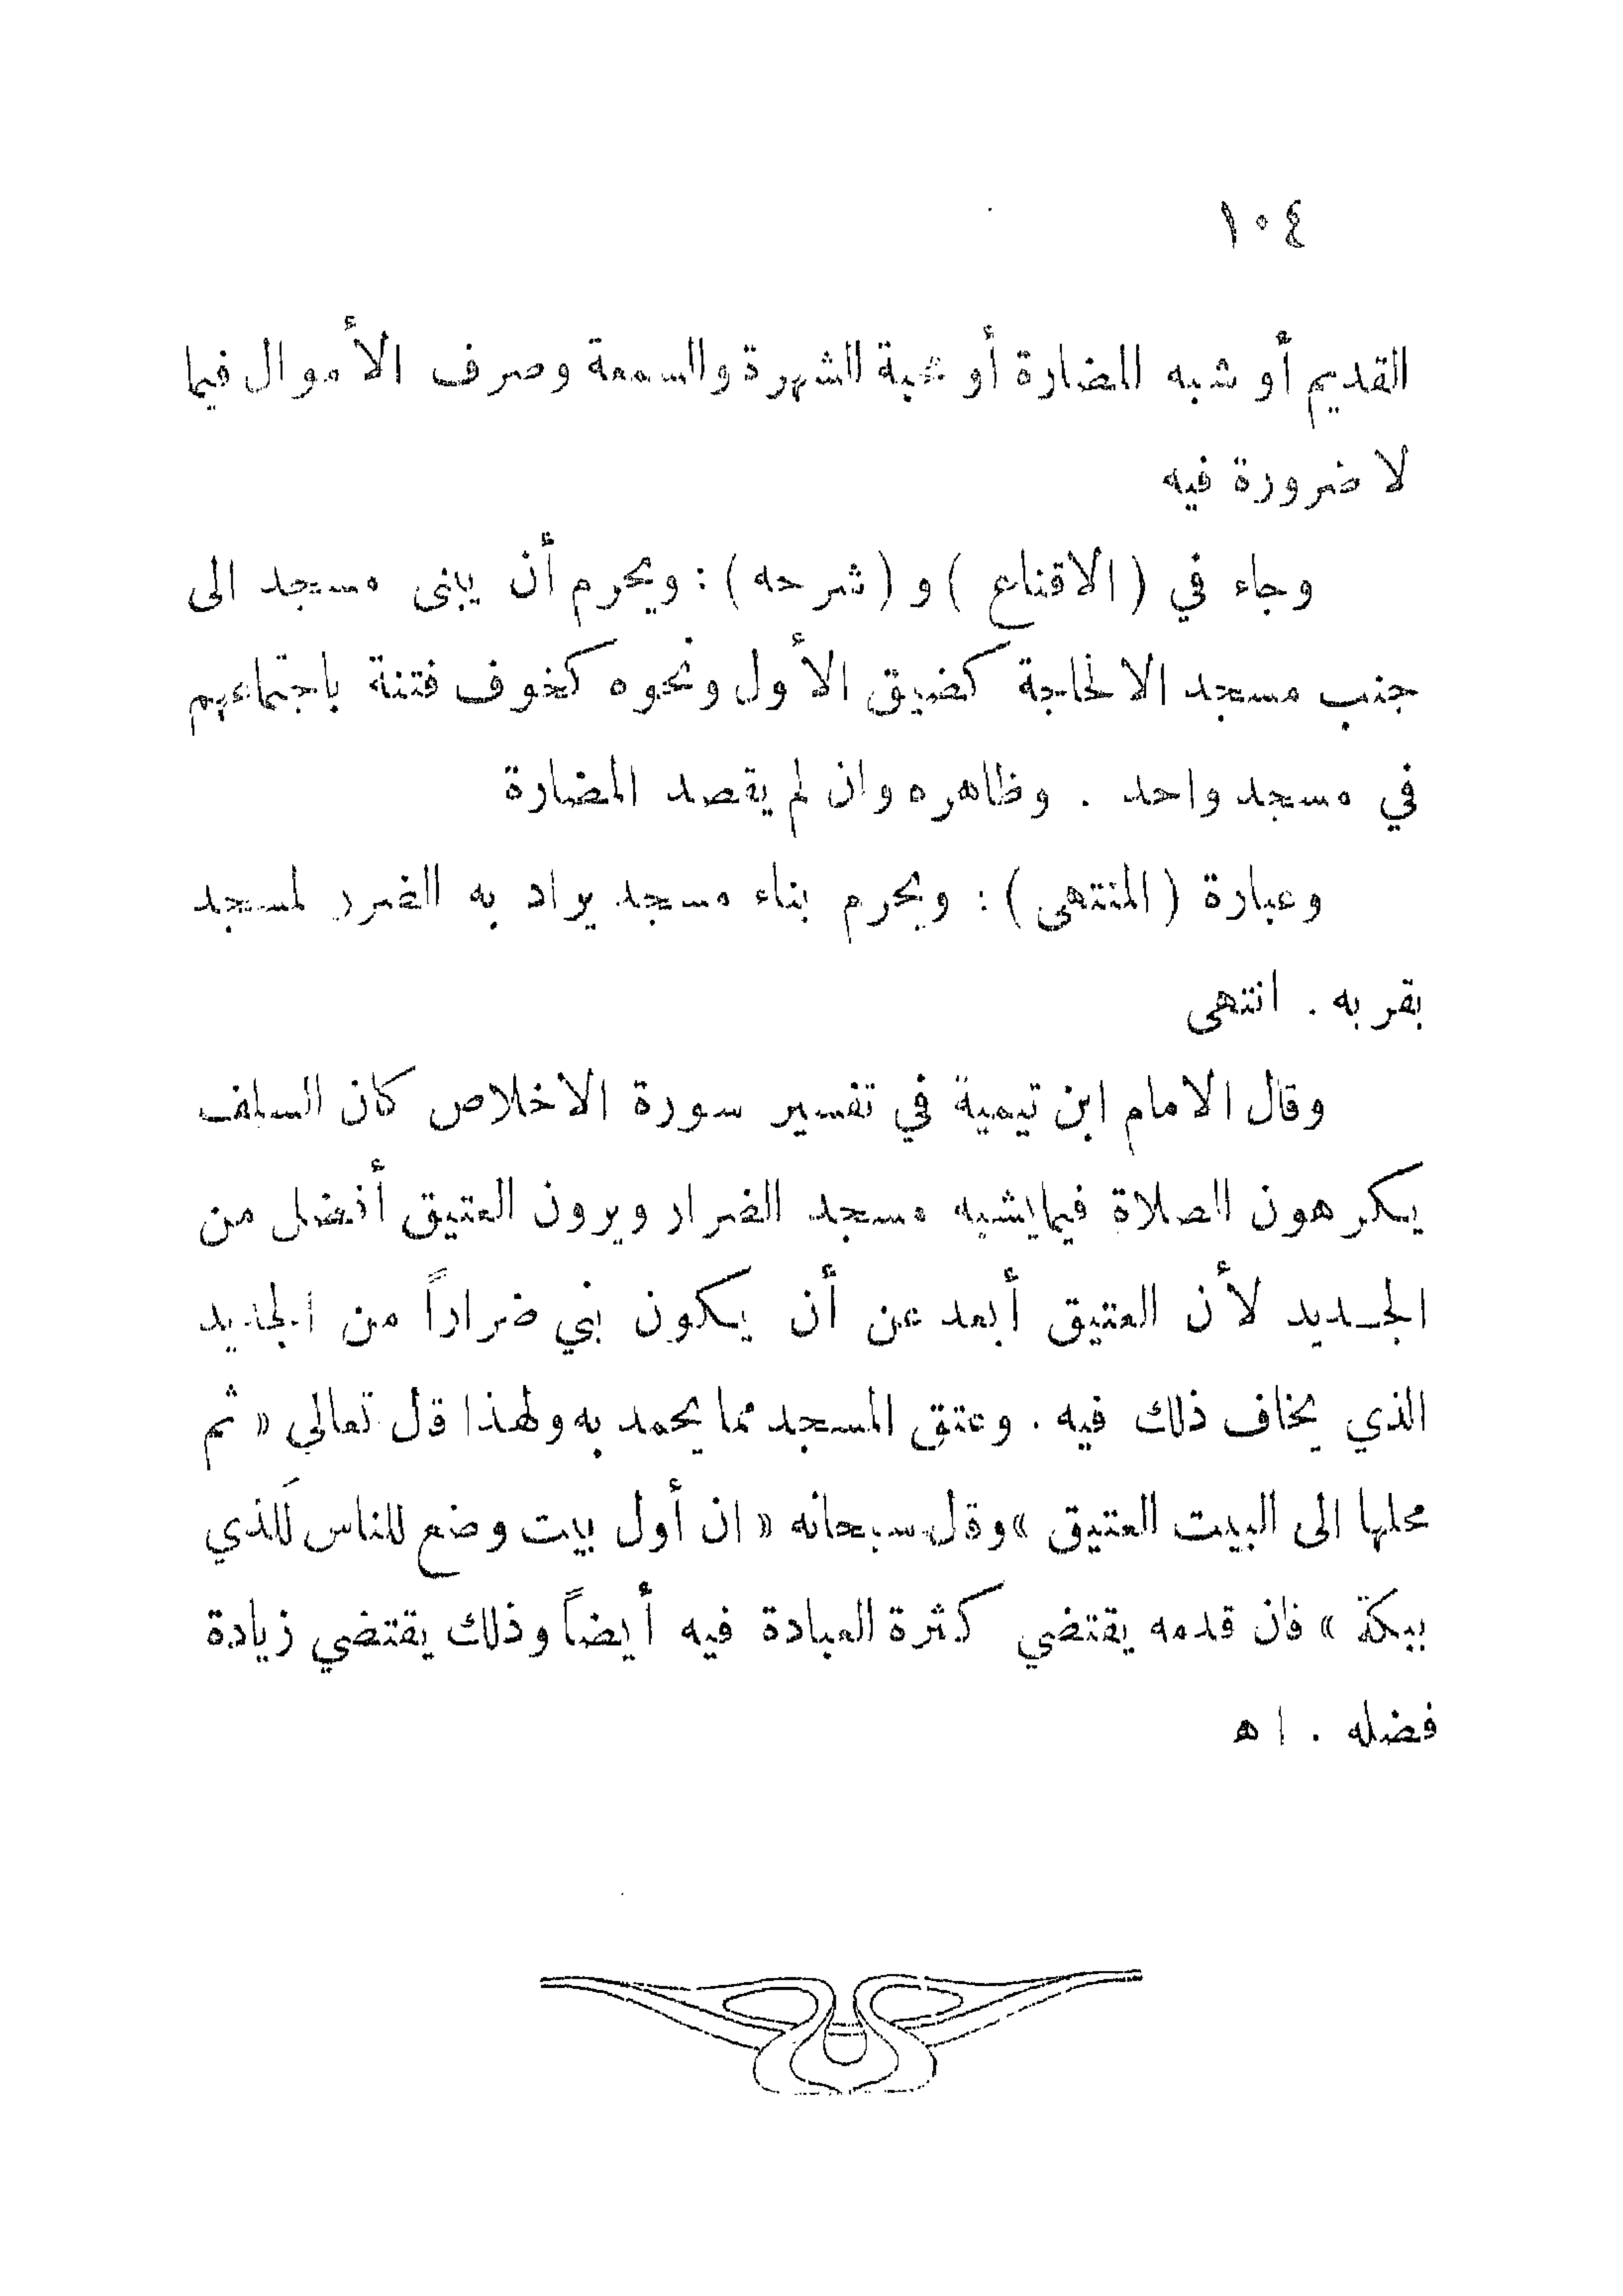 ١٠٤
القديم أو شبه المضارة أو محبة الشهرة والسمعة وصرف الأموال فيما
لا ضرورة فيه
وجاء في (الاقناع) و (شرحه): ويحرم أن يبنى مسجد الى
جنب مسجد الا لحاجة كضيق الأول ونحوه كخوف فتنة باجتماعهم
في مسجد واحد . وظاهره وان لم يقصد المضارة
وعبارة (المنتهى): ويحرم بناء مسجد يراد به الضرر لمسجد
بقربه . انتهى
وقال الامام ابن تيمية في تفسير سورة الاخلاص كان السلف
يكرهون الصلاة فيما يشبه مسجد الضرار ويرون العتيق أفضل من
الجديد لأن العتيق أبعد عن أن يكون بني ضراراً من الجديد
الذي يخاف ذلك فيه . وعتق المسجد مما يحمد به ولهذا قل تعالى « ثم
محلها الى البيت العتيق » وقل سبحانه « ان أول بيت وضع للناس لَلذي
ببكة » فان قدمه يقتضي كثرة العبادة فيه أيضاً وذلك يقتضي زيادة
فضله . ا ه